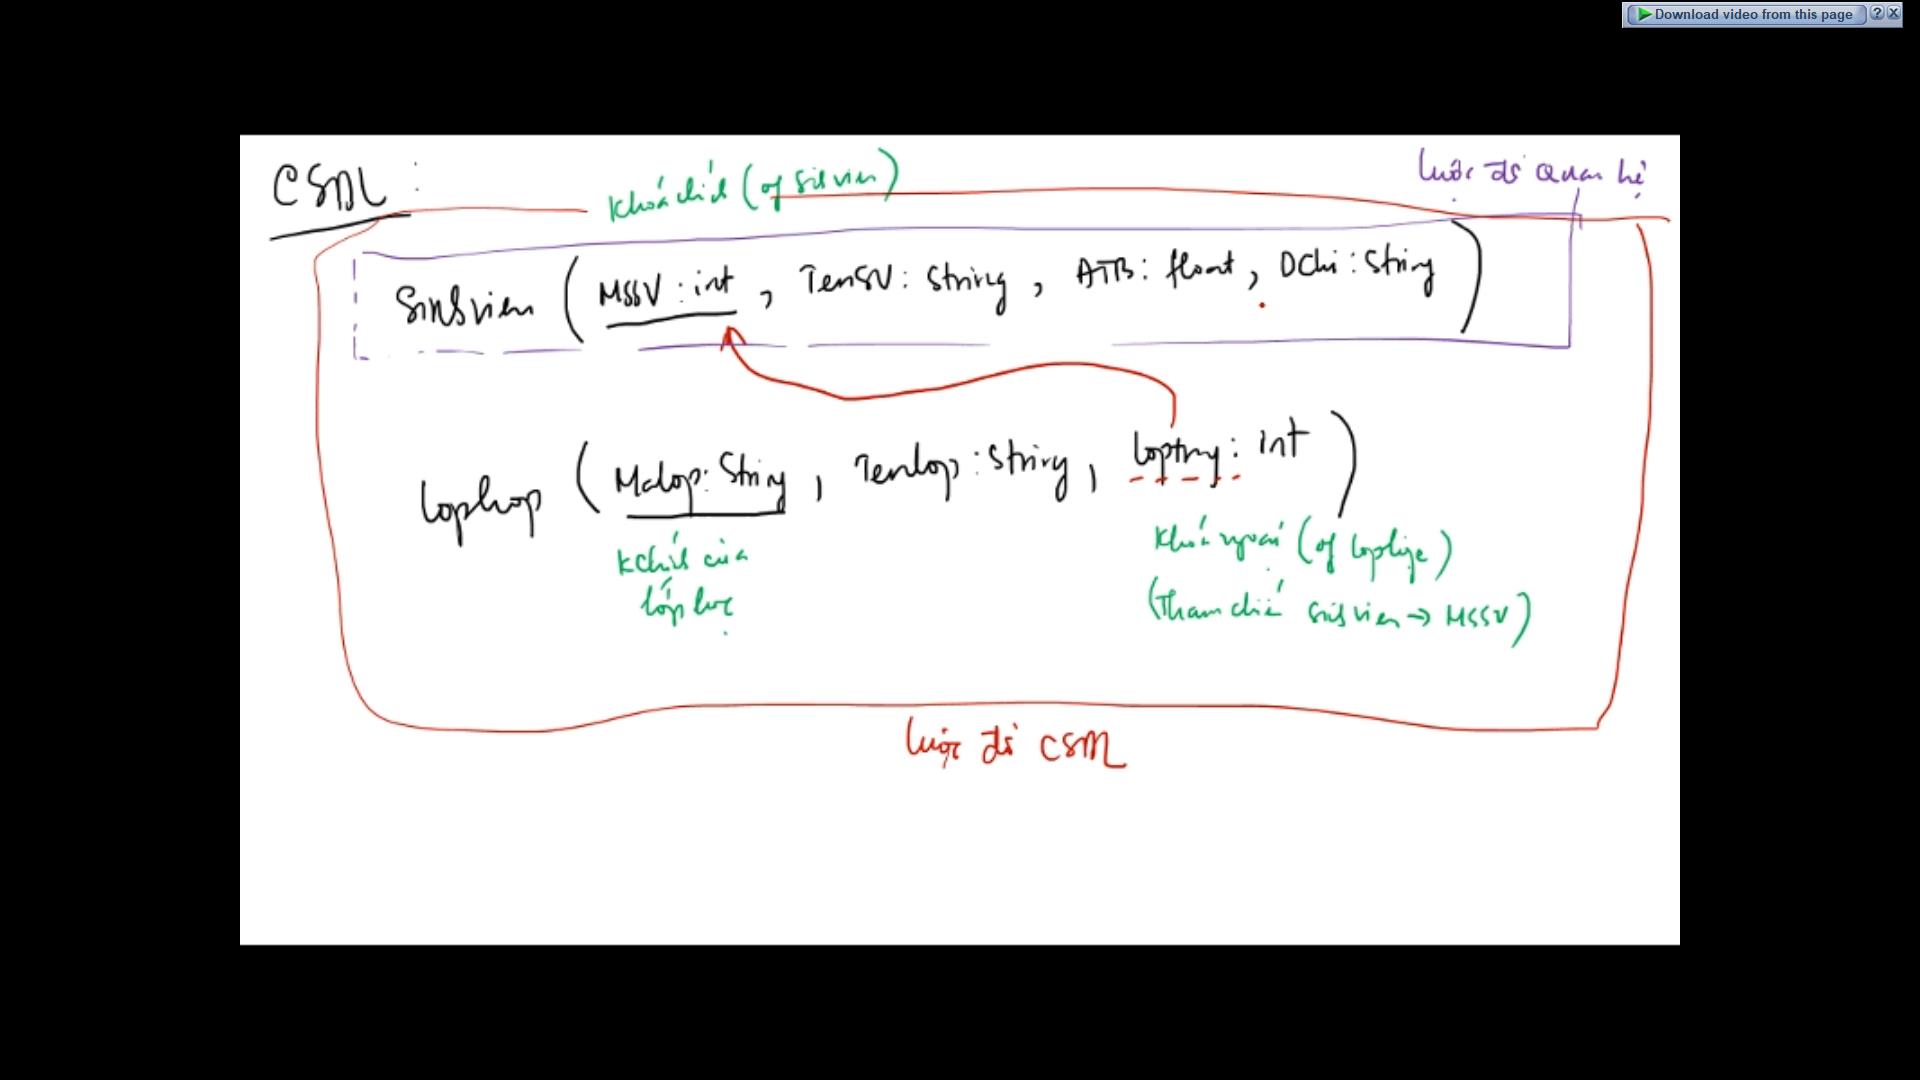 Download video from this page
CSDL :
Khoá chính (of Sinhvien)
lược đồ Quan hệ
Sinhvien ( MSSV : int , TenSV : String , ĐTB : float , DChi : String )
Lophoc ( Malop : String , Tenlop : String , loptrg : int )
Kchính của
lớp học
Khoá ngoại (of lophọc)
(Tham chiế sinhvien → MSSV)
lược đồ CSDL